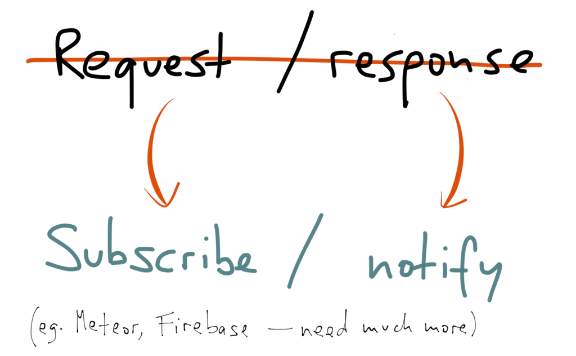 Request / response
Subscribe / notify
(eg. Meteor, Firebase — need much more)